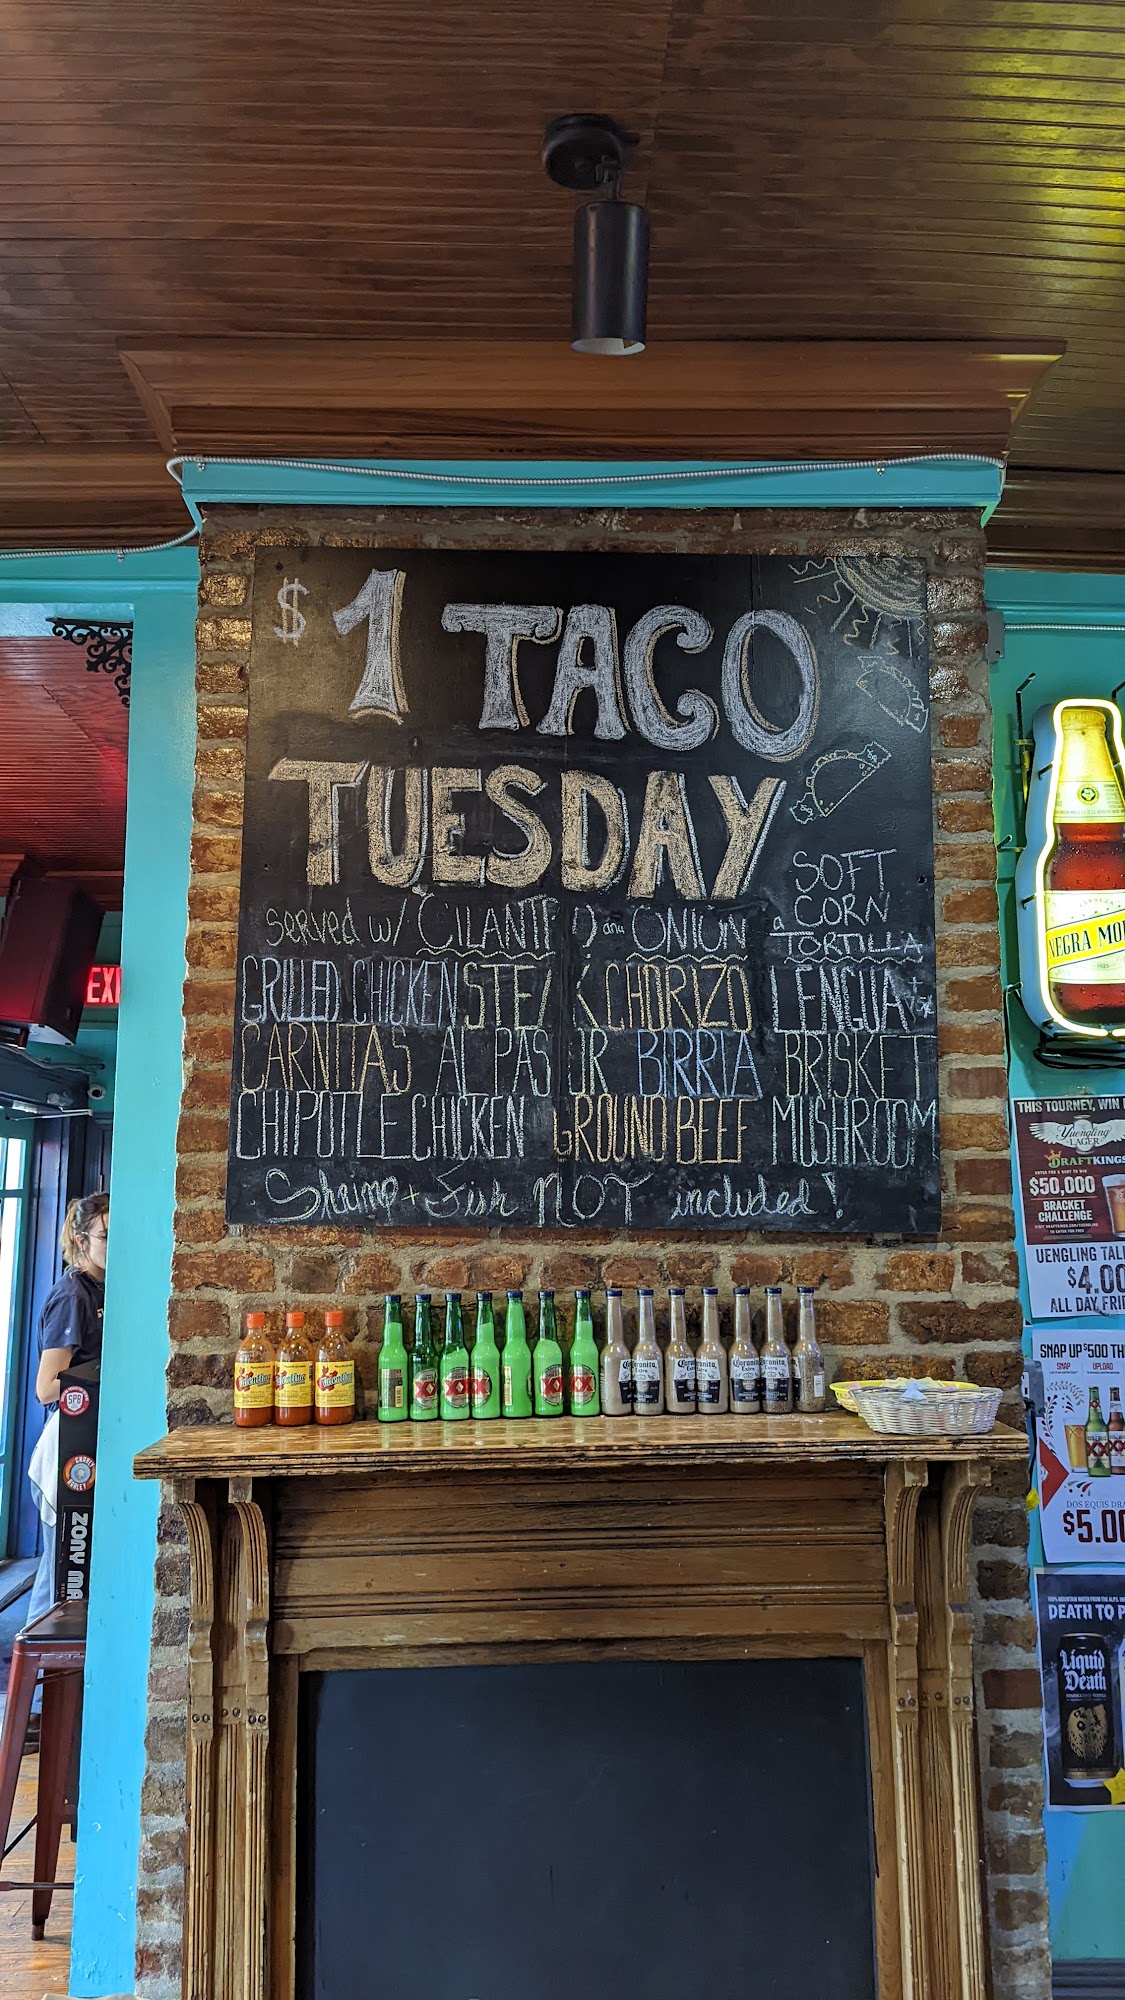 $1 TACO
TUESDAY
SERVED W/ CILANTRO and ONION
a SOFT
CORN
TORTILLA
GRILLED CHICKEN STEAK CHORIZO LENGUA
CARNITAS AL PASTOR BIRRIA BRISKET
CHIPOTLE CHICKEN GROUND BEEF MUSHROOM
Shrimp + Fish NOT included!
EXI
NEGRA MO
THIS TOURNEY, WIN
Yuengling
LAGER
DRAFTKINGS
$50,000
BRACKET
CHALLENGE
UENGLING TAL
$4.00
ALL DAY FRI
SNAP UP $500 TH
SNAP UPLOAD
DOS EQUIS DRA
$5.00
DEATH TO P
Liquid
Death
Valentina
Valentina
Valentina
XX
XX
XX
Coronita
Extra
Coronita
Extra
Coronita
Extra
SPB
ZONY MA